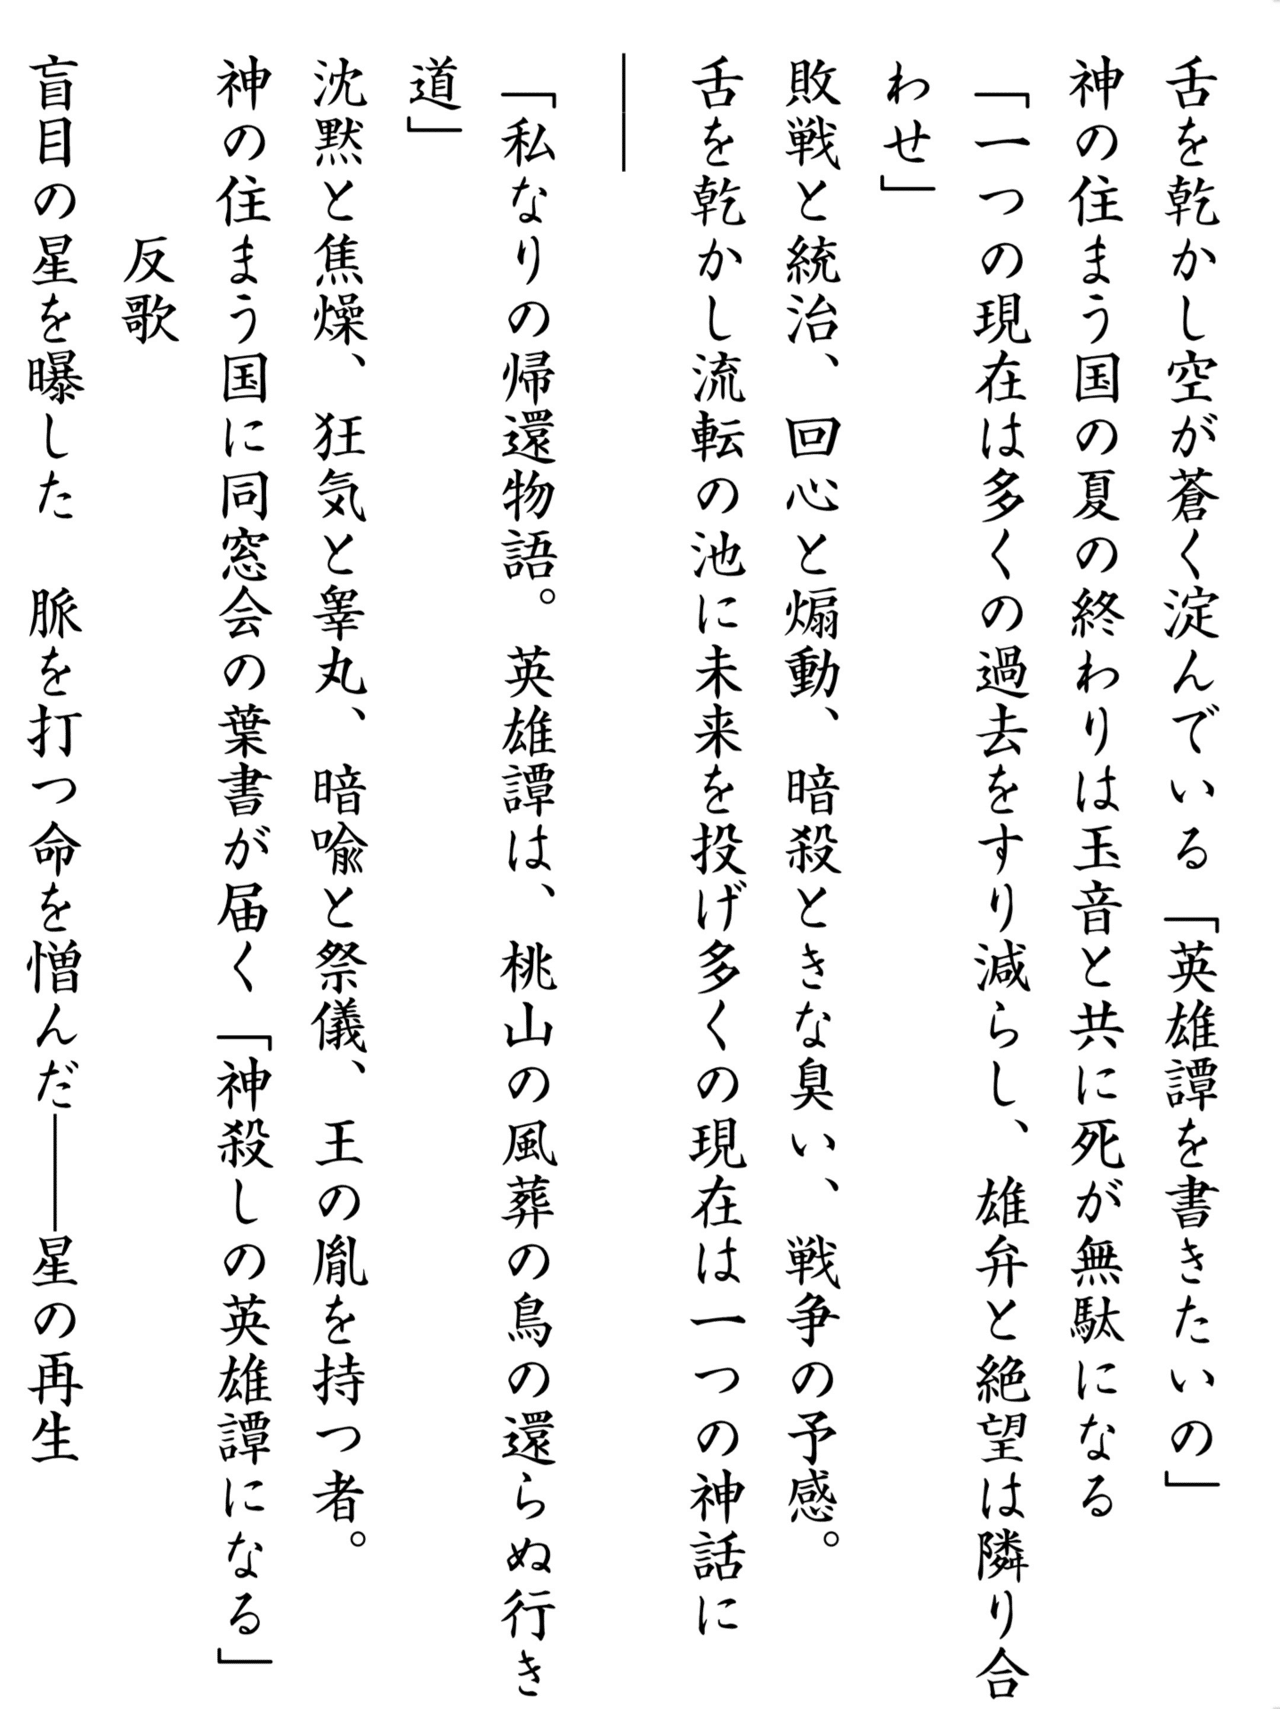 舌を乾かし空が蒼く淀んでいる「英雄譚を書きたいの」
神の住まう国の夏の終わりは玉音と共に死が無駄になる
「一つの現在は多くの過去をすり減らし、雄弁と絶望は隣り合
わせ」
敗戦と統治、回心と煽動、暗殺ときな臭い、戦争の予感。
舌を乾かし流転の池に未来を投げ多くの現在は一つの神話に
――
「私なりの帰還物語。英雄譚は、桃山の風葬の鳥の還らぬ行き
道」
沈黙と焦燥、狂気と睾丸、暗喩と祭儀、王の胤を持つ者。
神の住まう国に同窓会の葉書が届く「神殺しの英雄譚になる」
反歌
盲目の星を曝した　脈を打つ命を憎んだ――星の再生